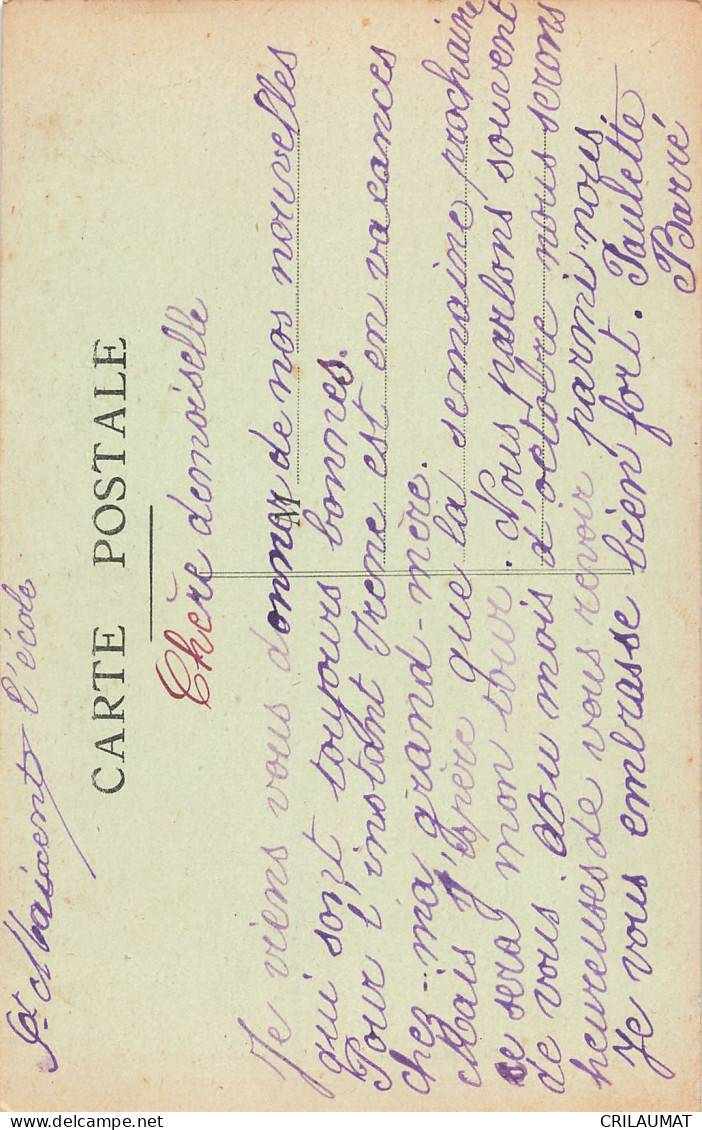 St Maixent l'école
CARTE POSTALE
Chère demoiselle
Je viens vous donner de nos nouvelles
qui sont toujours bonnes.
Pour l'instant Irene est en vacances
chez ma grand-mère.
Mais j'espère que la semaine prochaine
ce sera mon tour. Nous parlons souvent
de vous. Au mois d'octobre nous serons
heureuses de vous revoir parmi nous.
Je vous embrasse bien fort. Paulette
Barré
CRILAUMAT